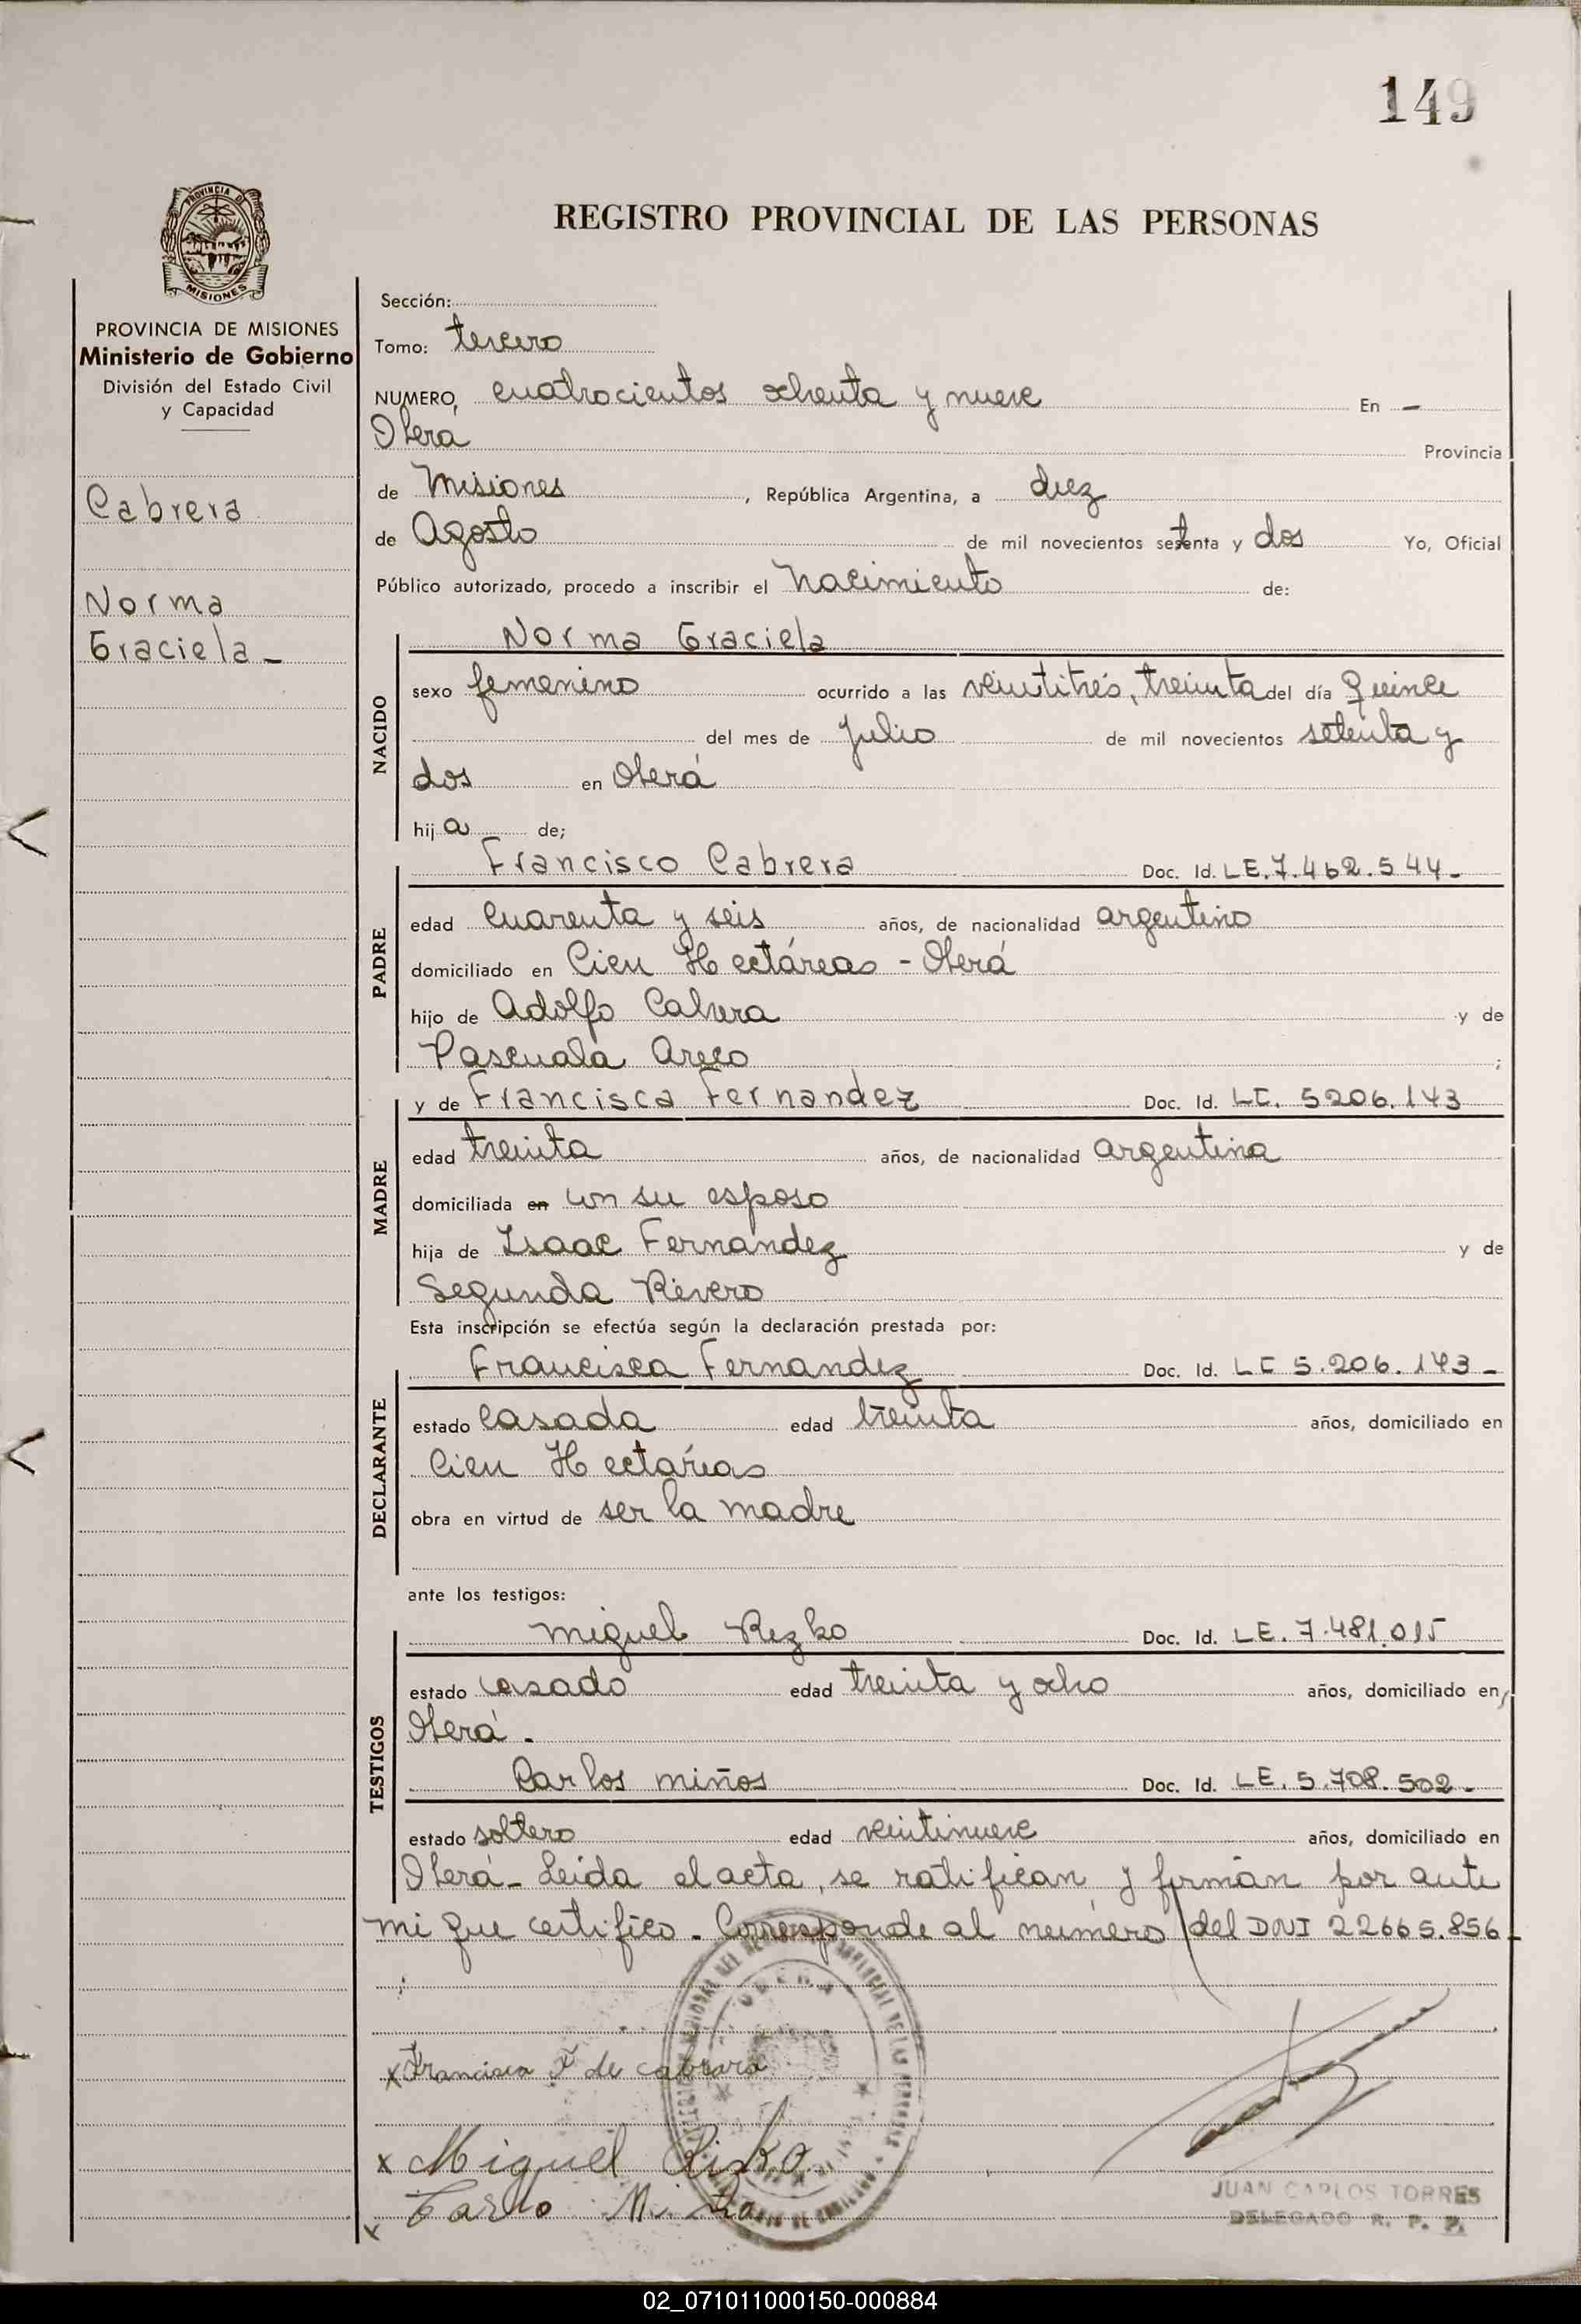 149
PROVINCIA DE
MISIONES
REGISTRO PROVINCIAL DE LAS PERSONAS
PROVINCIA DE MISIONES
Ministerio de Gobierno
División del Estado Civil
y Capacidad
Cabrera
Norma
Graciela -
Sección:
Tomo: tercero
NUMERO, cuatrocientos ochenta y nueve En -
Oberá Provincia
de Misiones, República Argentina, a diez
de Agosto de mil novecientos setenta y dos Yo, Oficial
Público autorizado, procedo a inscribir el Nacimiento de:
NACIDO
Norma Graciela
sexo femenino ocurrido a las veintitrés, treinta del día Quince
del mes de Julio de mil novecientos setenta y
dos en Oberá
hija de;
PADRE
Francisco Cabrera Doc. Id. LE. 7.462.544-
edad Cuarenta y seis años, de nacionalidad argentino
domiciliado en Cien Hectáreas - Oberá
hijo de Adolfo Cabrera y de
Pascuala Areco ;
MADRE
y de Francisca Fernandez Doc. Id. LC. 5206.143
edad treinta años, de nacionalidad argentina
domiciliada en con su esposo
hija de Isaac Fernandez y de
Segunda Rivero
Esta inscripción se efectúa según la declaración prestada por:
DECLARANTE
Francisca Fernandez Doc. Id. LC 5.206.143-
estado Casada edad treinta años, domiciliado en
Cien Hectáreas
obra en virtud de ser la madre
ante los testigos:
TESTIGOS
Miguel Rezko Doc. Id. LE. 7.481.015
estado casado edad treinta y ocho años, domiciliado en
Oberá.
Carlos miños Doc. Id. LE. 5.708.502-
estado soltero edad veintinueve años, domiciliado en
Oberá - Leída el acta, se ratifican y firman por ante
mi que certifico. Corresponde al número del DNI 22665.856-
x Francisca F de cabrara
x Miguel Risko
x Carlo
JUAN CARLOS TORRES
DELEGADO R. P. P.
02_071011000150-000884